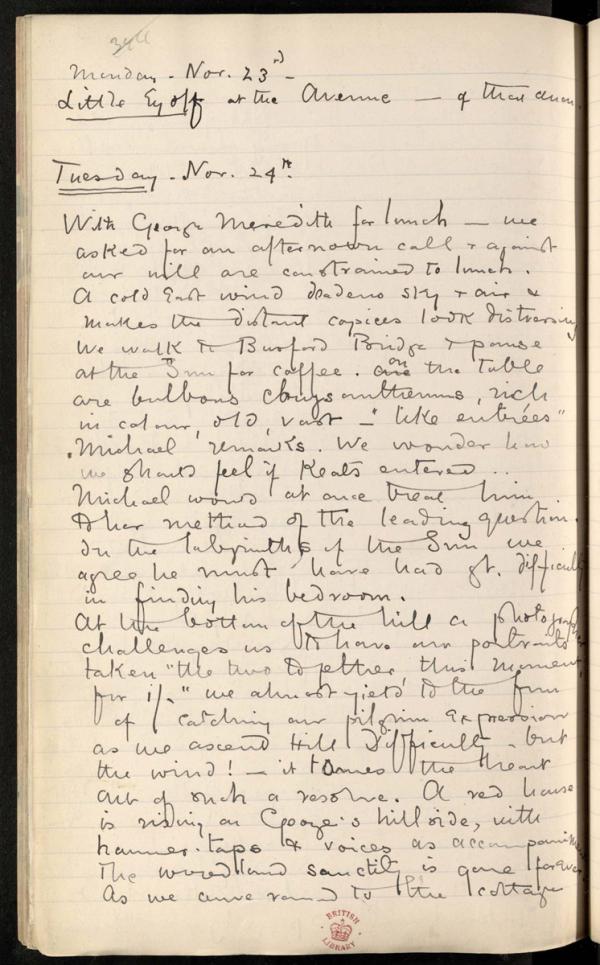 Monday - Nov. 23rd -
Little Eyolf at the Avenue — of that anon.
Tuesday - Nov. 24th.
With George Meredith for lunch — we
asked for an afternoon call & against
our will are constrained to lunch.
A cold East wind deadens sky & air &
makes the distant copices look distressing
We walk to Burford Bridge & pause
at the Inn for coffee. on the table
are bulbous chrysanthemums, rich
in colour, old, vast — "like entrées"
Michael remarks. We wonder how
we should feel if Keats entered ..
Michael would at once treat him
to her method of the leading question.
In the labyrinths of the Inn we
agree he must have had gt. difficulty
in finding his bedroom.
At the bottom of the hill a photographer
challenges us to have our portraits
taken "the two together this moment
for 1/-" we almost yield to the fun
of catching our pilgrim expression
as we ascend Hill Difficulty - but
the wind! — it the heart
out of such a resolve. A red house
is rising on George's hillside, with
hammer-taps & voices as accompaniment
The woodland sanctity is gone forever
As we came round to the cottage
BRITISH LIBRARY